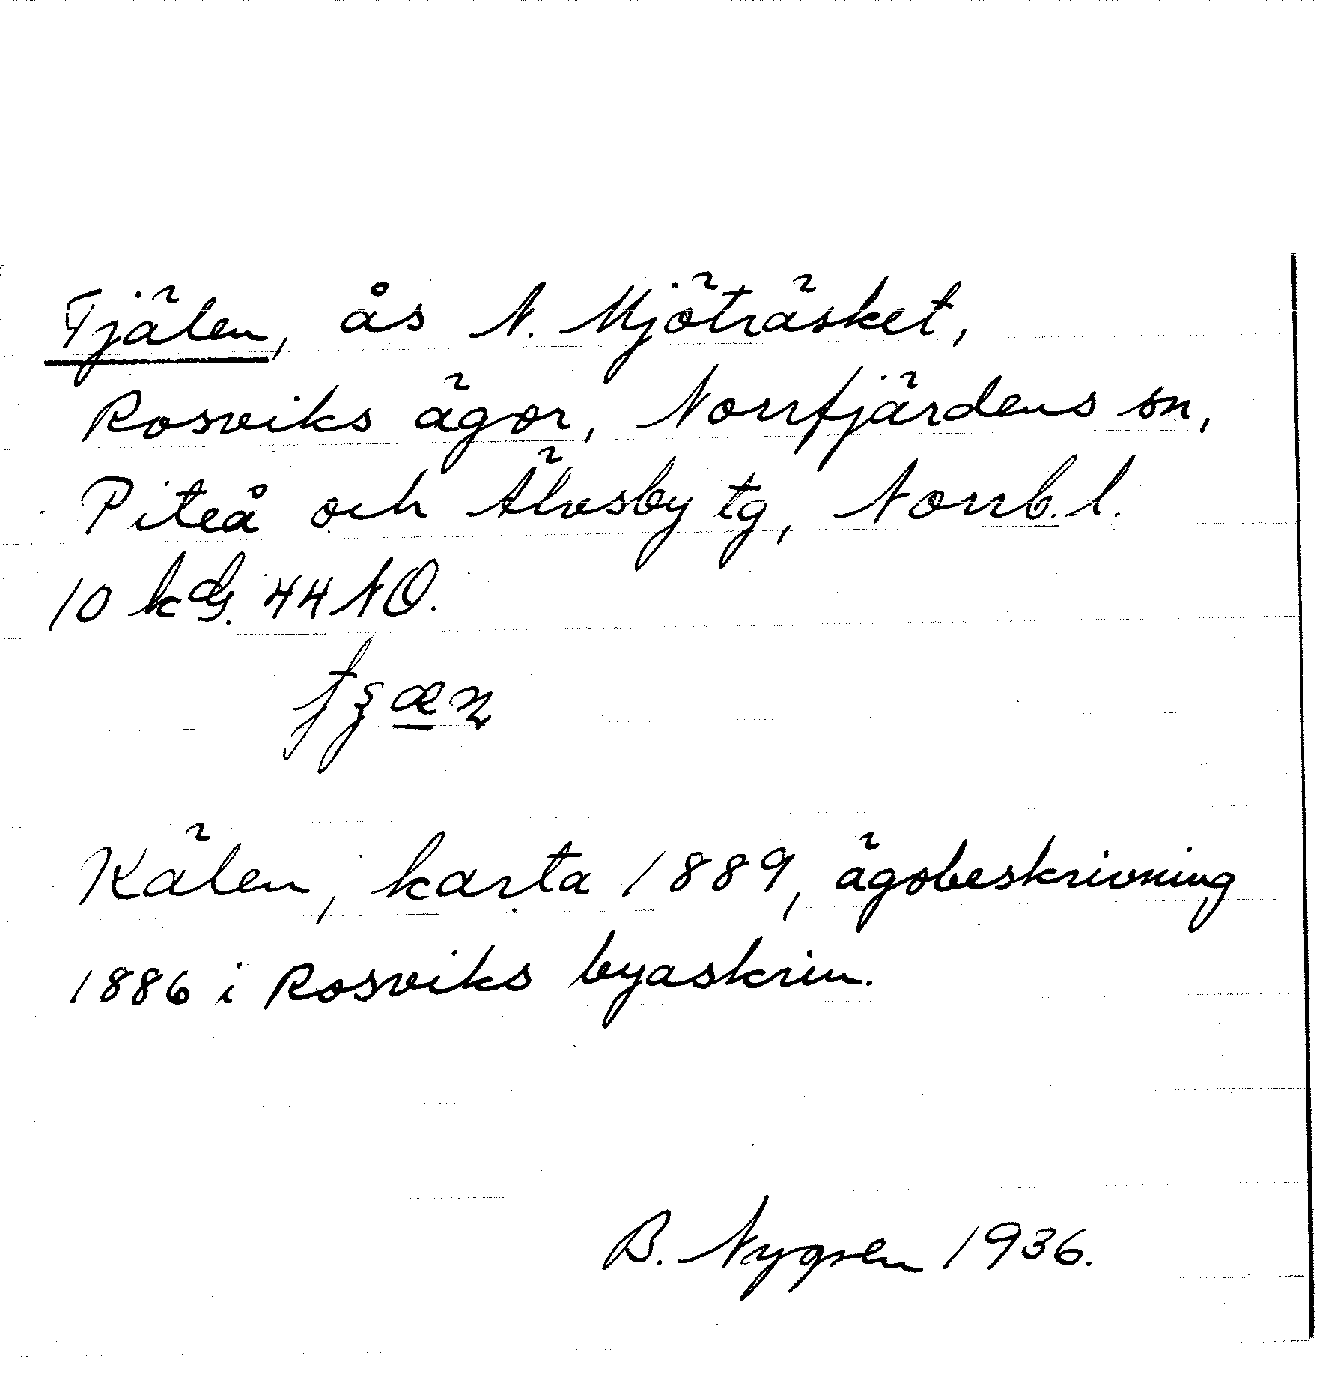 Tjälen, ås N. Mjöträsket,
Rosviks ägor, Norrfjärdens sn,
Piteå och Älvsby tg, Norrb. l.
10 kbl. 44 NO.
Kälen, karta 1889, ägobeskrivning
1886 i Rosviks byaskrin.
B. Nygren 1936.